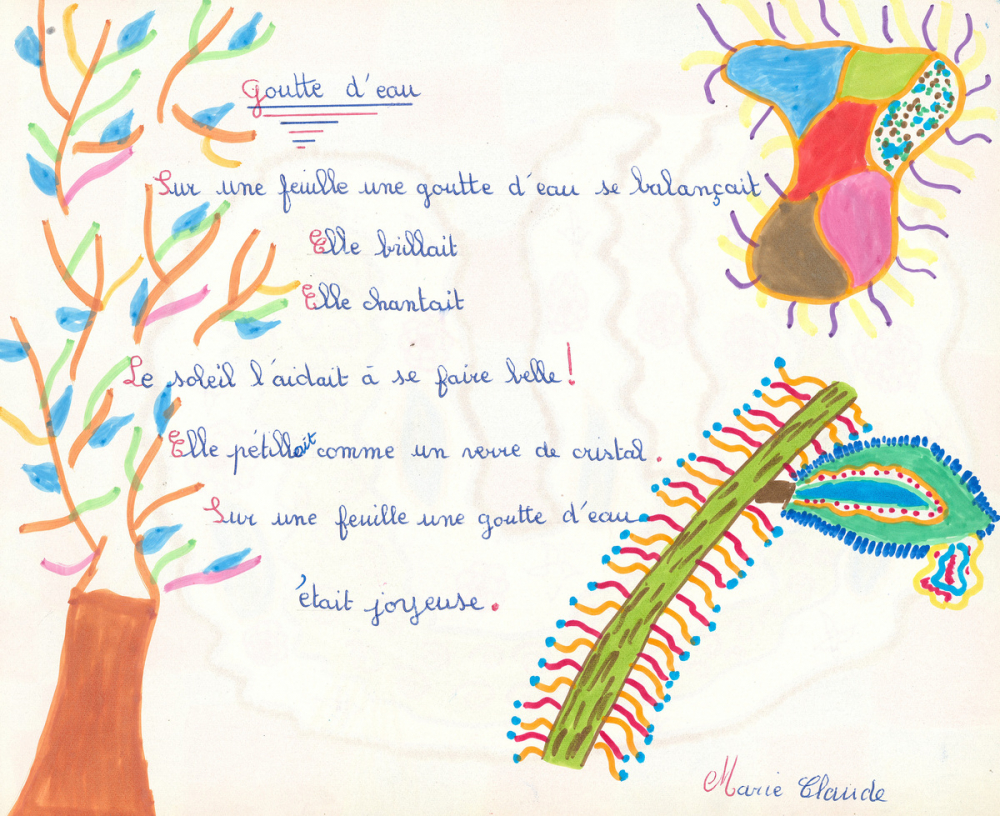 Goutte d'eau
Sur une feuille une goutte d'eau se balançait
Elle brillait
Elle chantait
Le soleil l'aidait à se faire belle !
Elle pétillait comme un verre de cristal.
Sur une feuille une goutte d'eau
était joyeuse.
Marie Claude